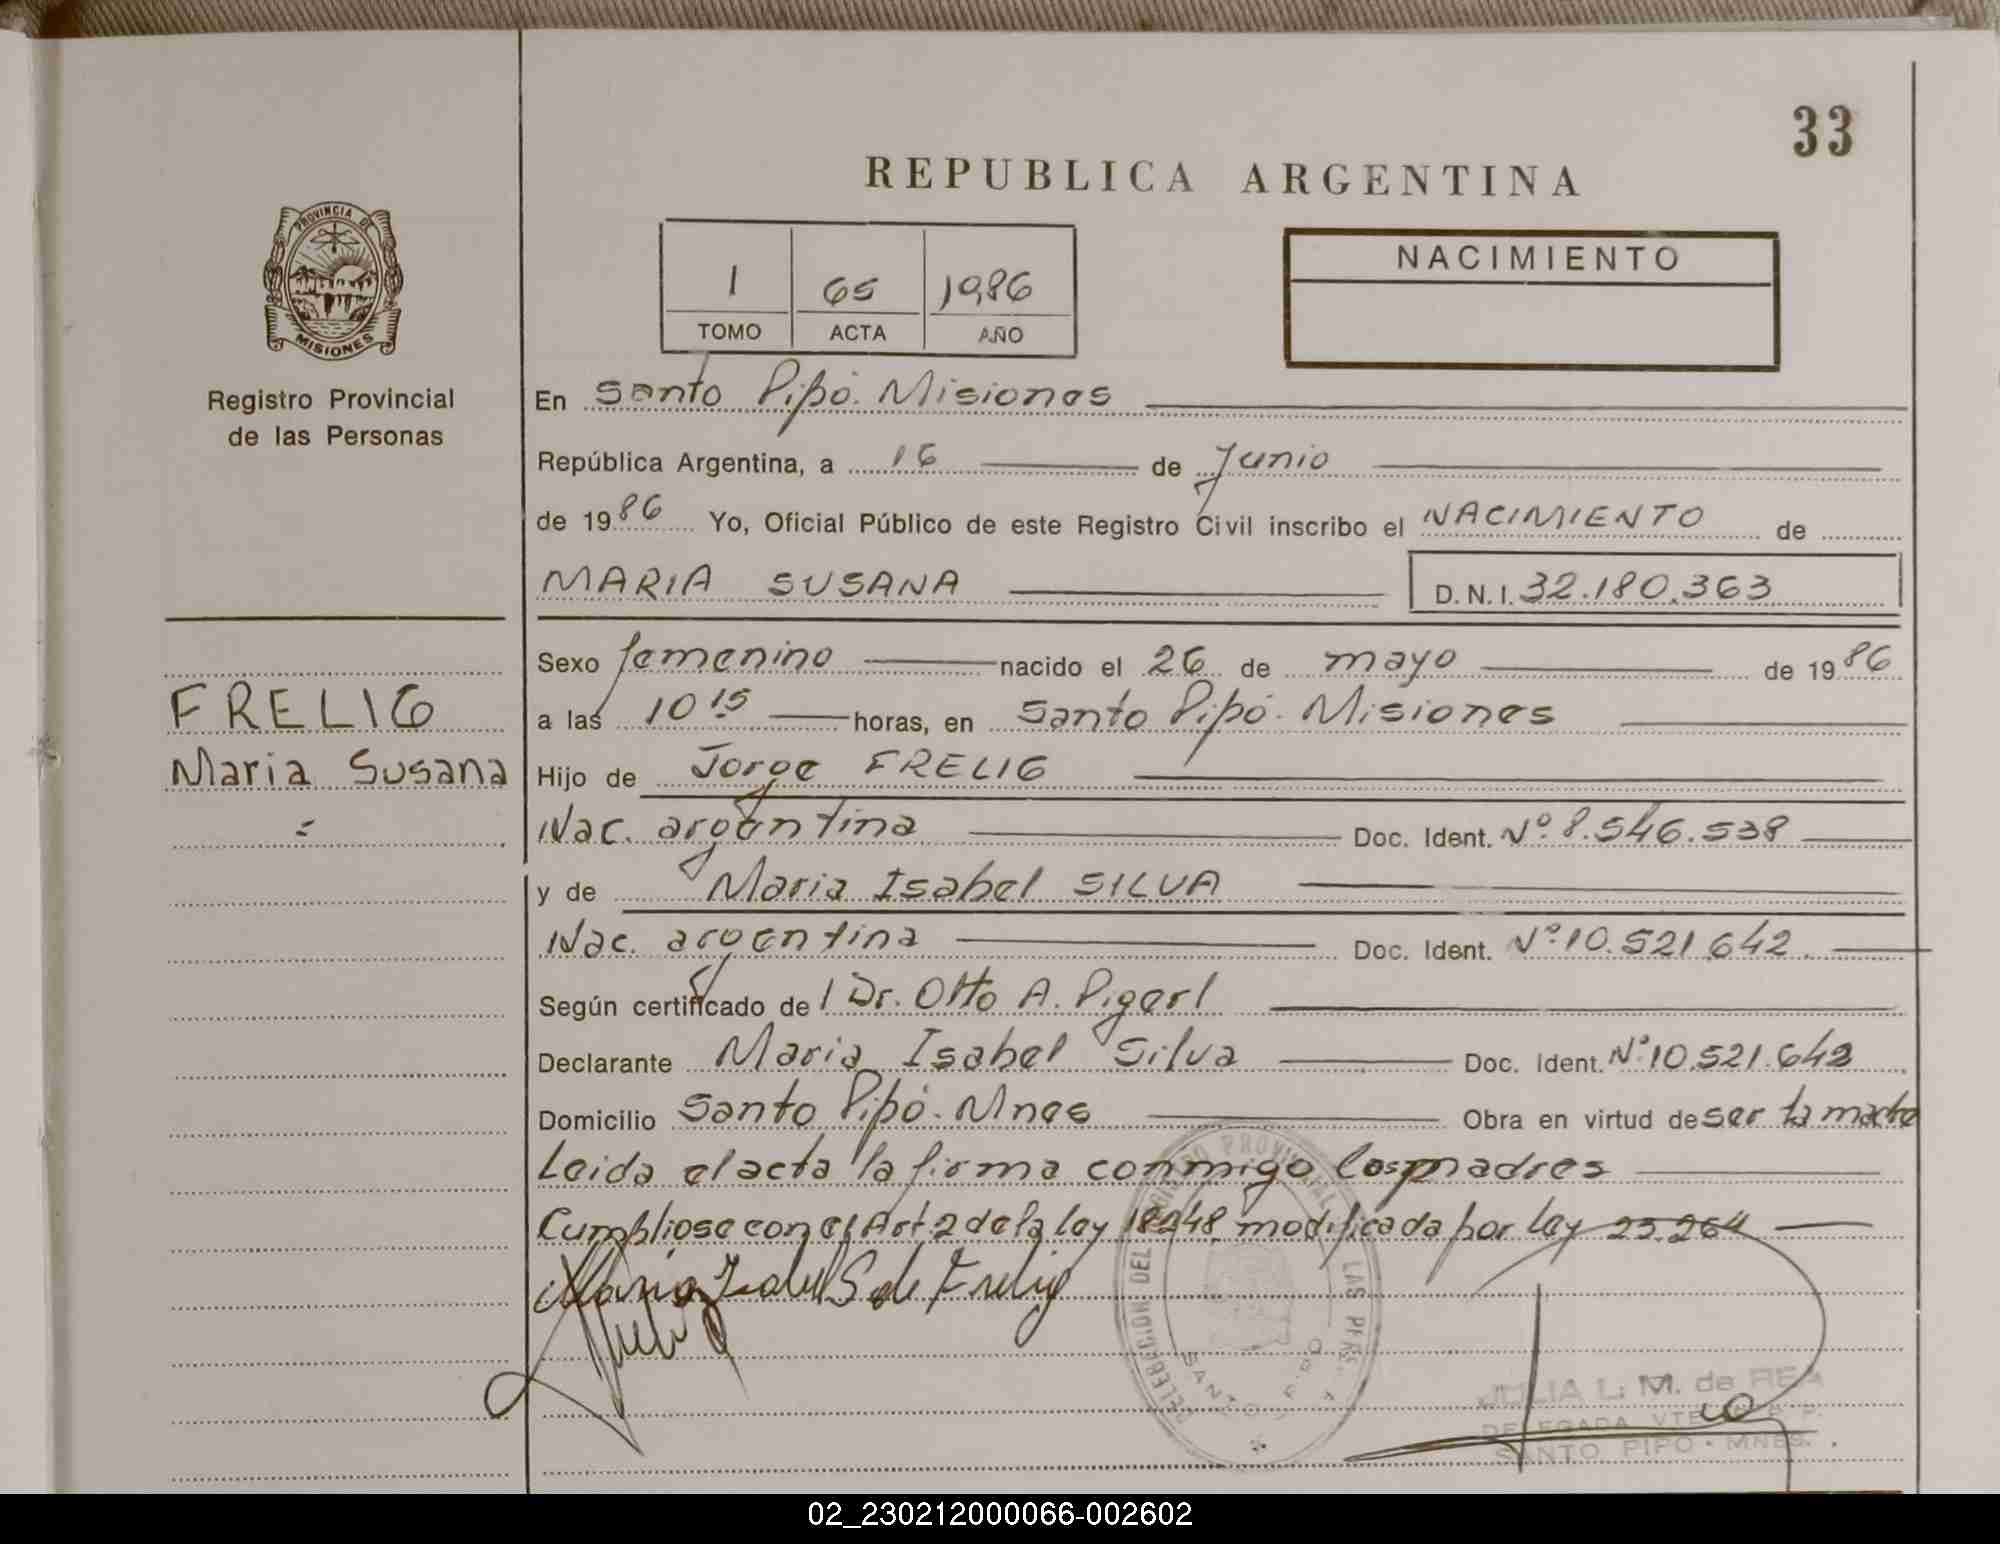 33
REPUBLICA ARGENTINA
PROVINCIA DE
MISIONES
Registro Provincial
de las Personas
1 65 1986
TOMO ACTA AÑO
NACIMIENTO
En Santo Pipó. Misiones
República Argentina, a 16 de Junio
de 1986 Yo, Oficial Público de este Registro Civil inscribo el NACIMIENTO de
MARIA SUSANA D.N.I. 32.180.363
FRELIG
Maria Susana
Sexo femenino nacido el 26 de mayo de 1986
a las 10 15 horas, en Santo Pipó. Misiones
Hijo de Jorge FRELIG
Nac. argentina Doc. Ident. Nº. 8.546.538
y de Maria Isabel SILVA
Nac. argentina Doc. Ident. Nº. 10.521.642.
Según certificado de l Dr. Otto A. Pigerl
Declarante Maria Isabel Silva Doc. Ident. Nº 10.521.642
Domicilio Santo Pipó. Mnes Obra en virtud de ser la madre
Leida el acta la firma conmigo los madres
Cumpliose con el Art. 2 de la ley 18248, modificada por ley 23.264
Maria Isabel S de Frelig
DELEGACION DEL REGISTRO PROVINCIAL LAS PERS.
SANTO PIPO
JULIA L. M. de REA
DELEGADA
SANTO PIPO - MNES.
02_230212000066-002602